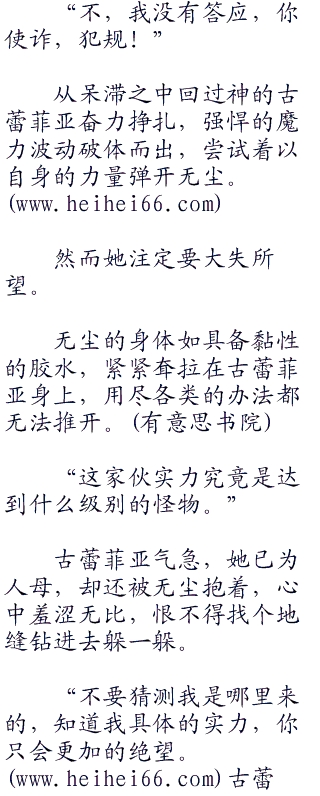 “不，我没有答应，你
使诈，犯规！”
从呆滞之中回过神的古
蕾菲亚奋力挣扎，强悍的魔
力波动破体而出，尝试着以
自身的力量弹开无尘。
(www.heihei66.com)
然而她注定要大失所
望。
无尘的身体如具备黏性
的胶水，紧紧耷拉在古蕾菲
亚身上，用尽各类的办法都
无法推开。(有意思书院)
“这家伙实力究竟是达
到什么级别的怪物。”
古蕾菲亚气急，她已为
人母，却还被无尘抱着，心
中羞涩无比，恨不得找个地
缝钻进去躲一躲。
“不要猜测我是哪里来
的，知道我具体的实力，你
只会更加的绝望。
(www.heihei66.com)古蕾